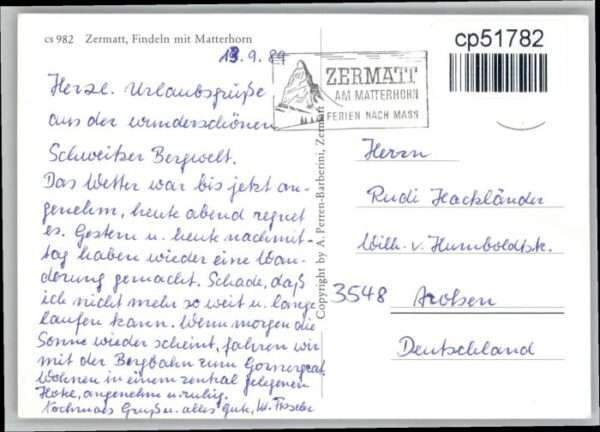 cs 982 Zermatt, Findeln mit Matterhorn
cp51782
13.9.89
ZERMATT
AM MATTERHORN
FERIEN NACH MASS
Herzl. Urlaubsgrüße
aus der wunderschönen
Schweitzer Bergwelt.
Das Wetter war bis jetzt an-
genehm, heute abend regnet
es. Gestern u. heute nachmit-
tag haben wieder eine Wan-
derung gemacht. Schade, daß
ich nicht mehr so weit u. lange
laufen kann. Wenn morgen die
Sonne wieder scheint, fahren wir
mit der Bergbahn zum Gornergrat
Wohnen in einem zentral gelegenen
angenehm u. ruhig.
Nochmals Gruß u. alles gute, W.
Copyright by A. Perren-Barberini, Zermatt
Herrn
Rudi Hackländer
Wilh. v. Humboldtstr.
3548 Arolsen
Deutschland